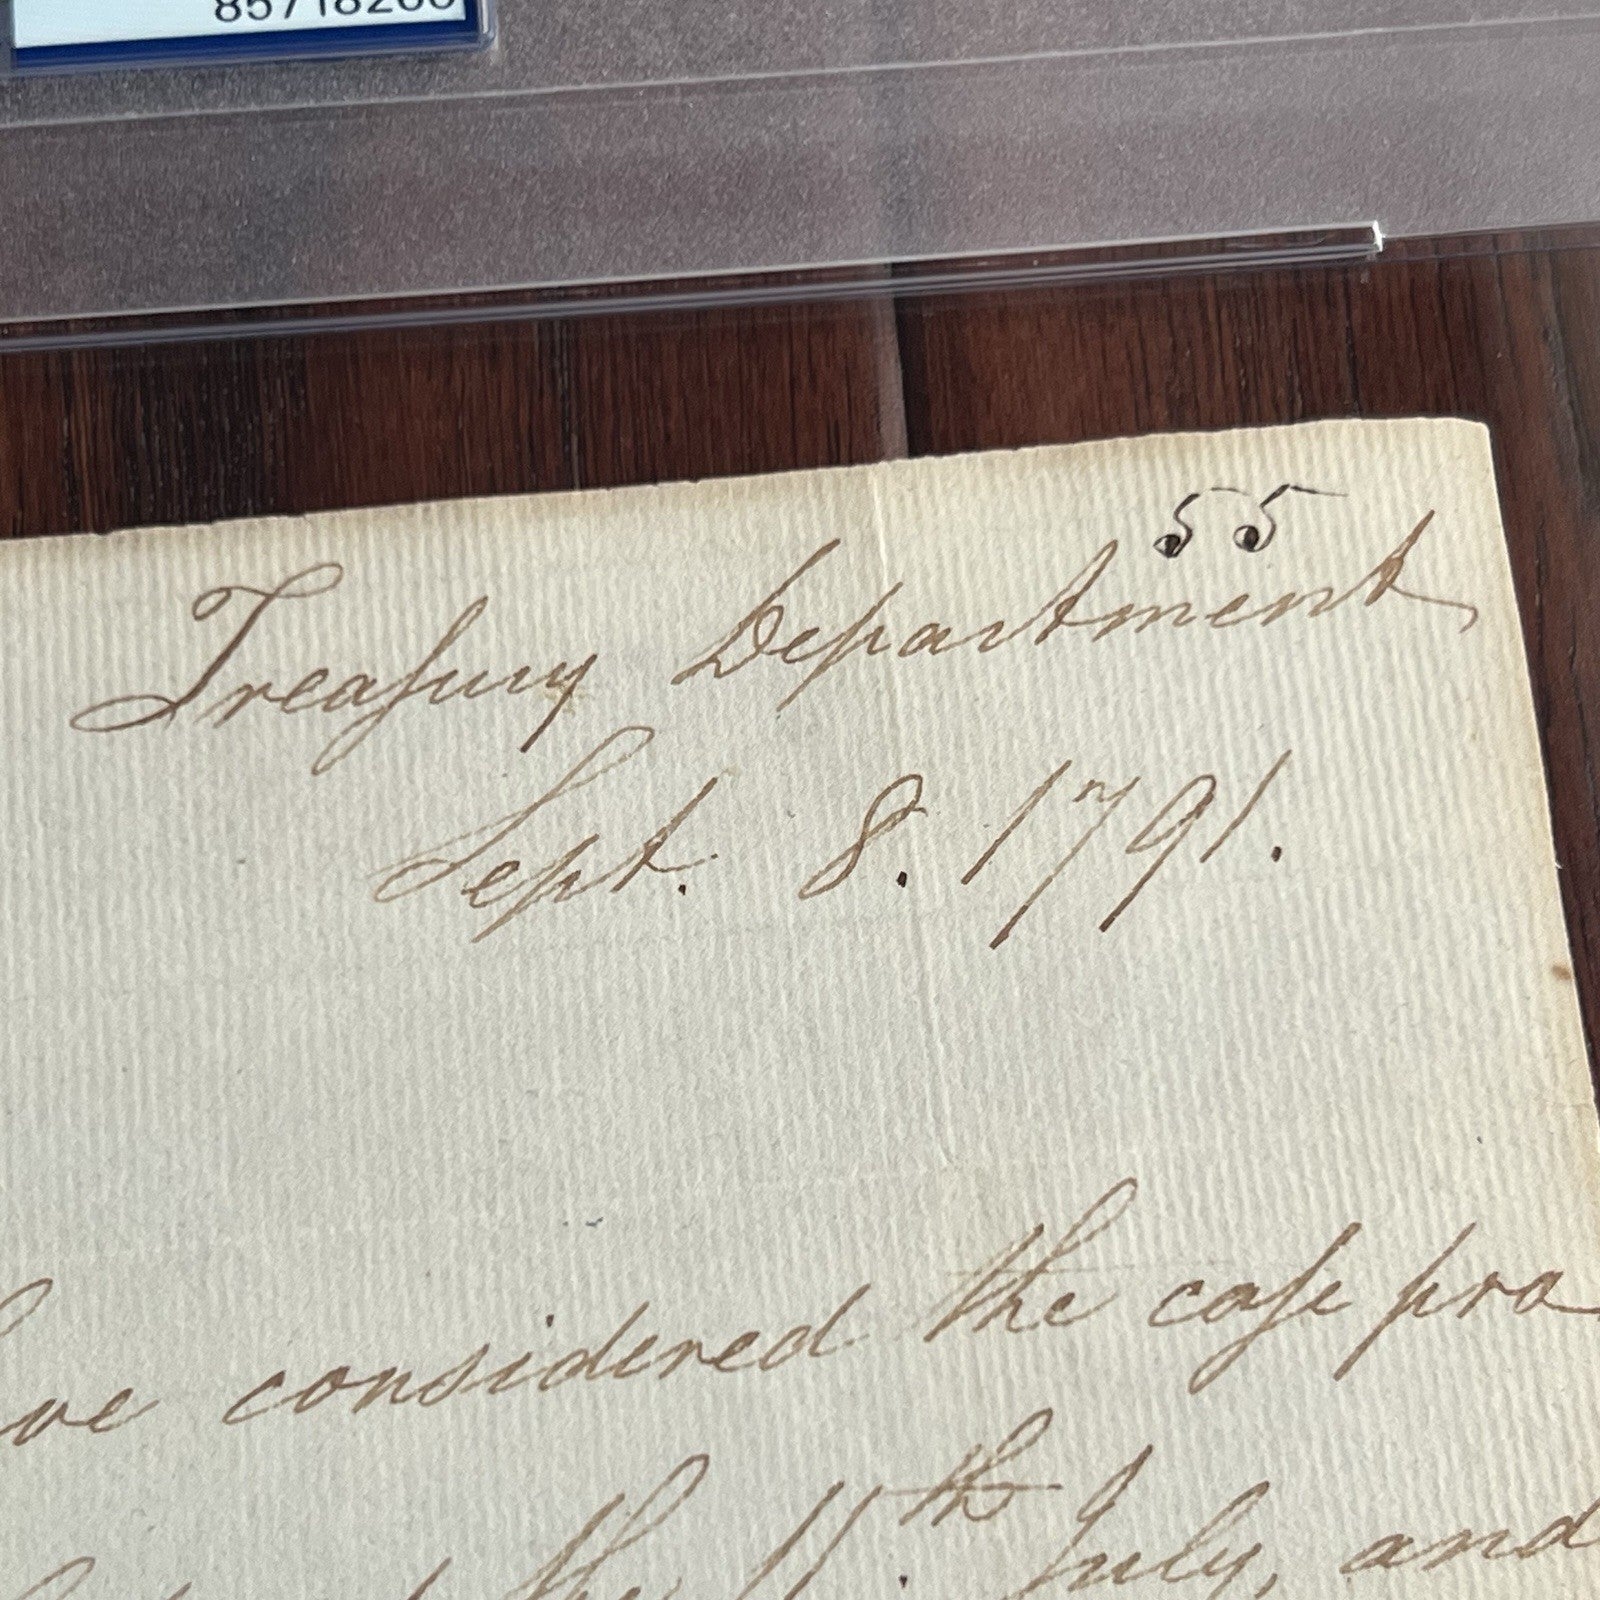 55
Treaſury Department
Sept. 8. 1791.
ve considered the caſe pro
the 11th July, and